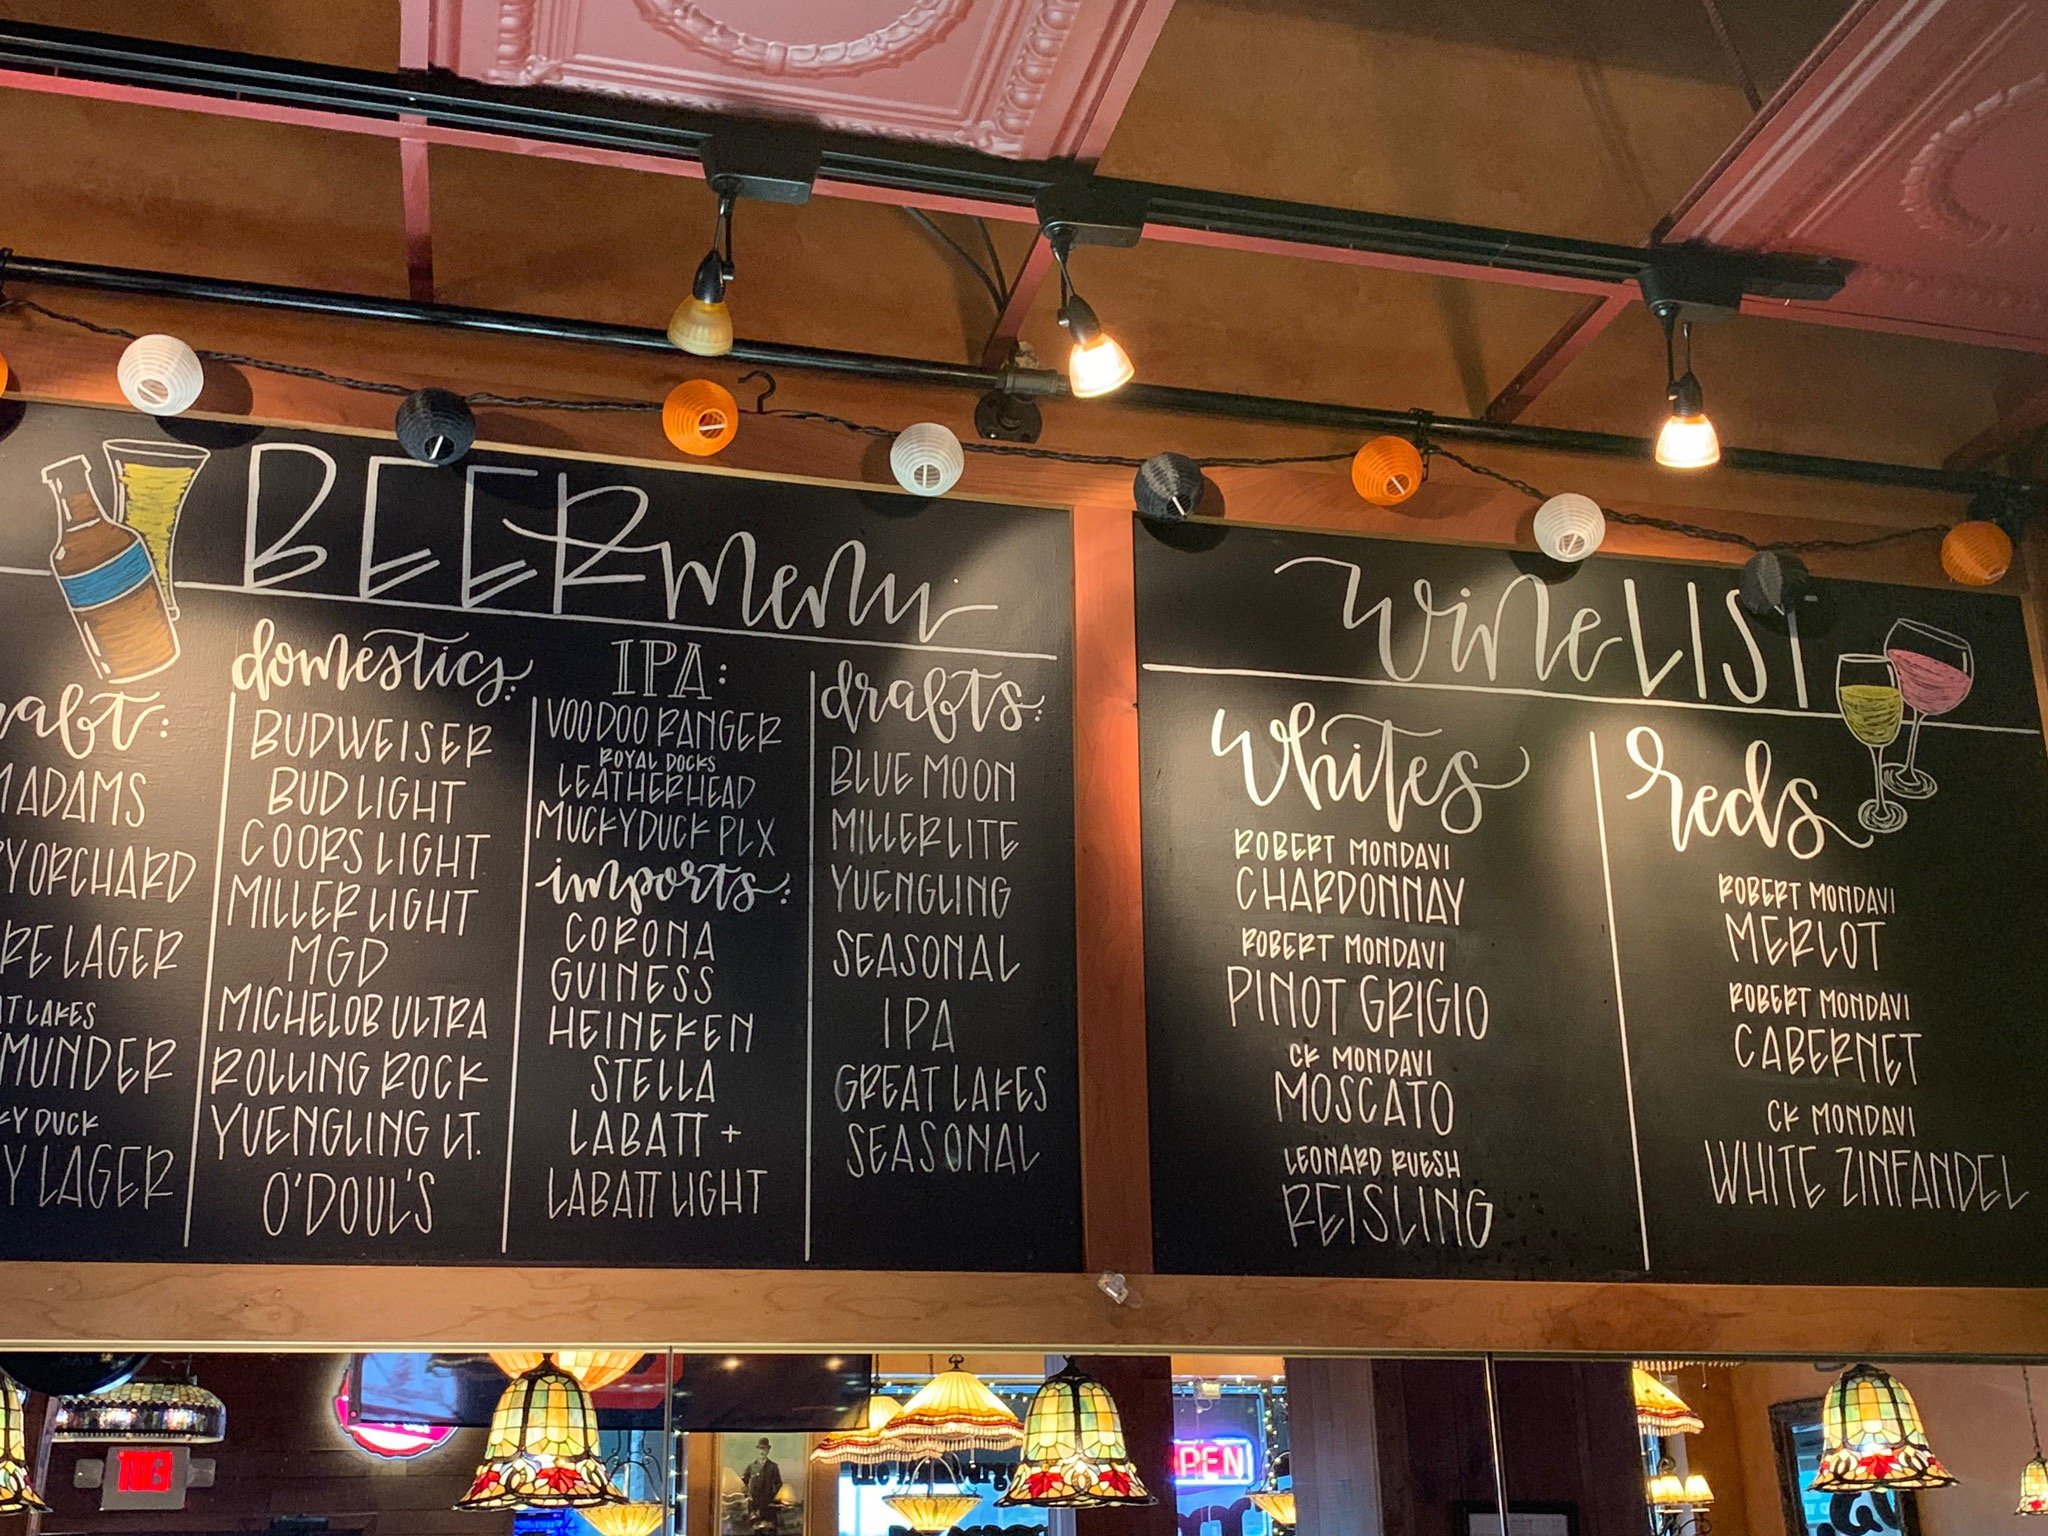 BEER menu
MADAMS
ORCHARD
LAGER
LAKES
MUNDER
DUCK
LAGER
domestics:
BUDWEISER
BUD LIGHT
COORS LIGHT
MILLER LIGHT
MGD
MICHELOB ULTRA
ROLLING ROCK
YUENGLING LT.
O'DOUL'S
IPA:
VOODOO RANGER
ROYAL DOCKS
LEATHERHEAD
MUCKY DUCK PLX
imports:
CORONA
GUINESS
HEINEKEN
STELLA
LABATT +
LABATT LIGHT
drafts:
BLUE MOON
MILLER LITE
YUENGLING
SEASONAL
IPA
GREAT LAKES
SEASONAL
wine LIST
Whites
ROBERT MONDAVI
CHARDONNAY
ROBERT MONDAVI
PINOT GRIGIO
CK MONDAVI
MOSCATO
LEONARD RUESH
REISLING
Reds
ROBERT MONDAVI
MERLOT
ROBERT MONDAVI
CABERNET
CK MONDAVI
WHITE ZINFANDEL
OPEN